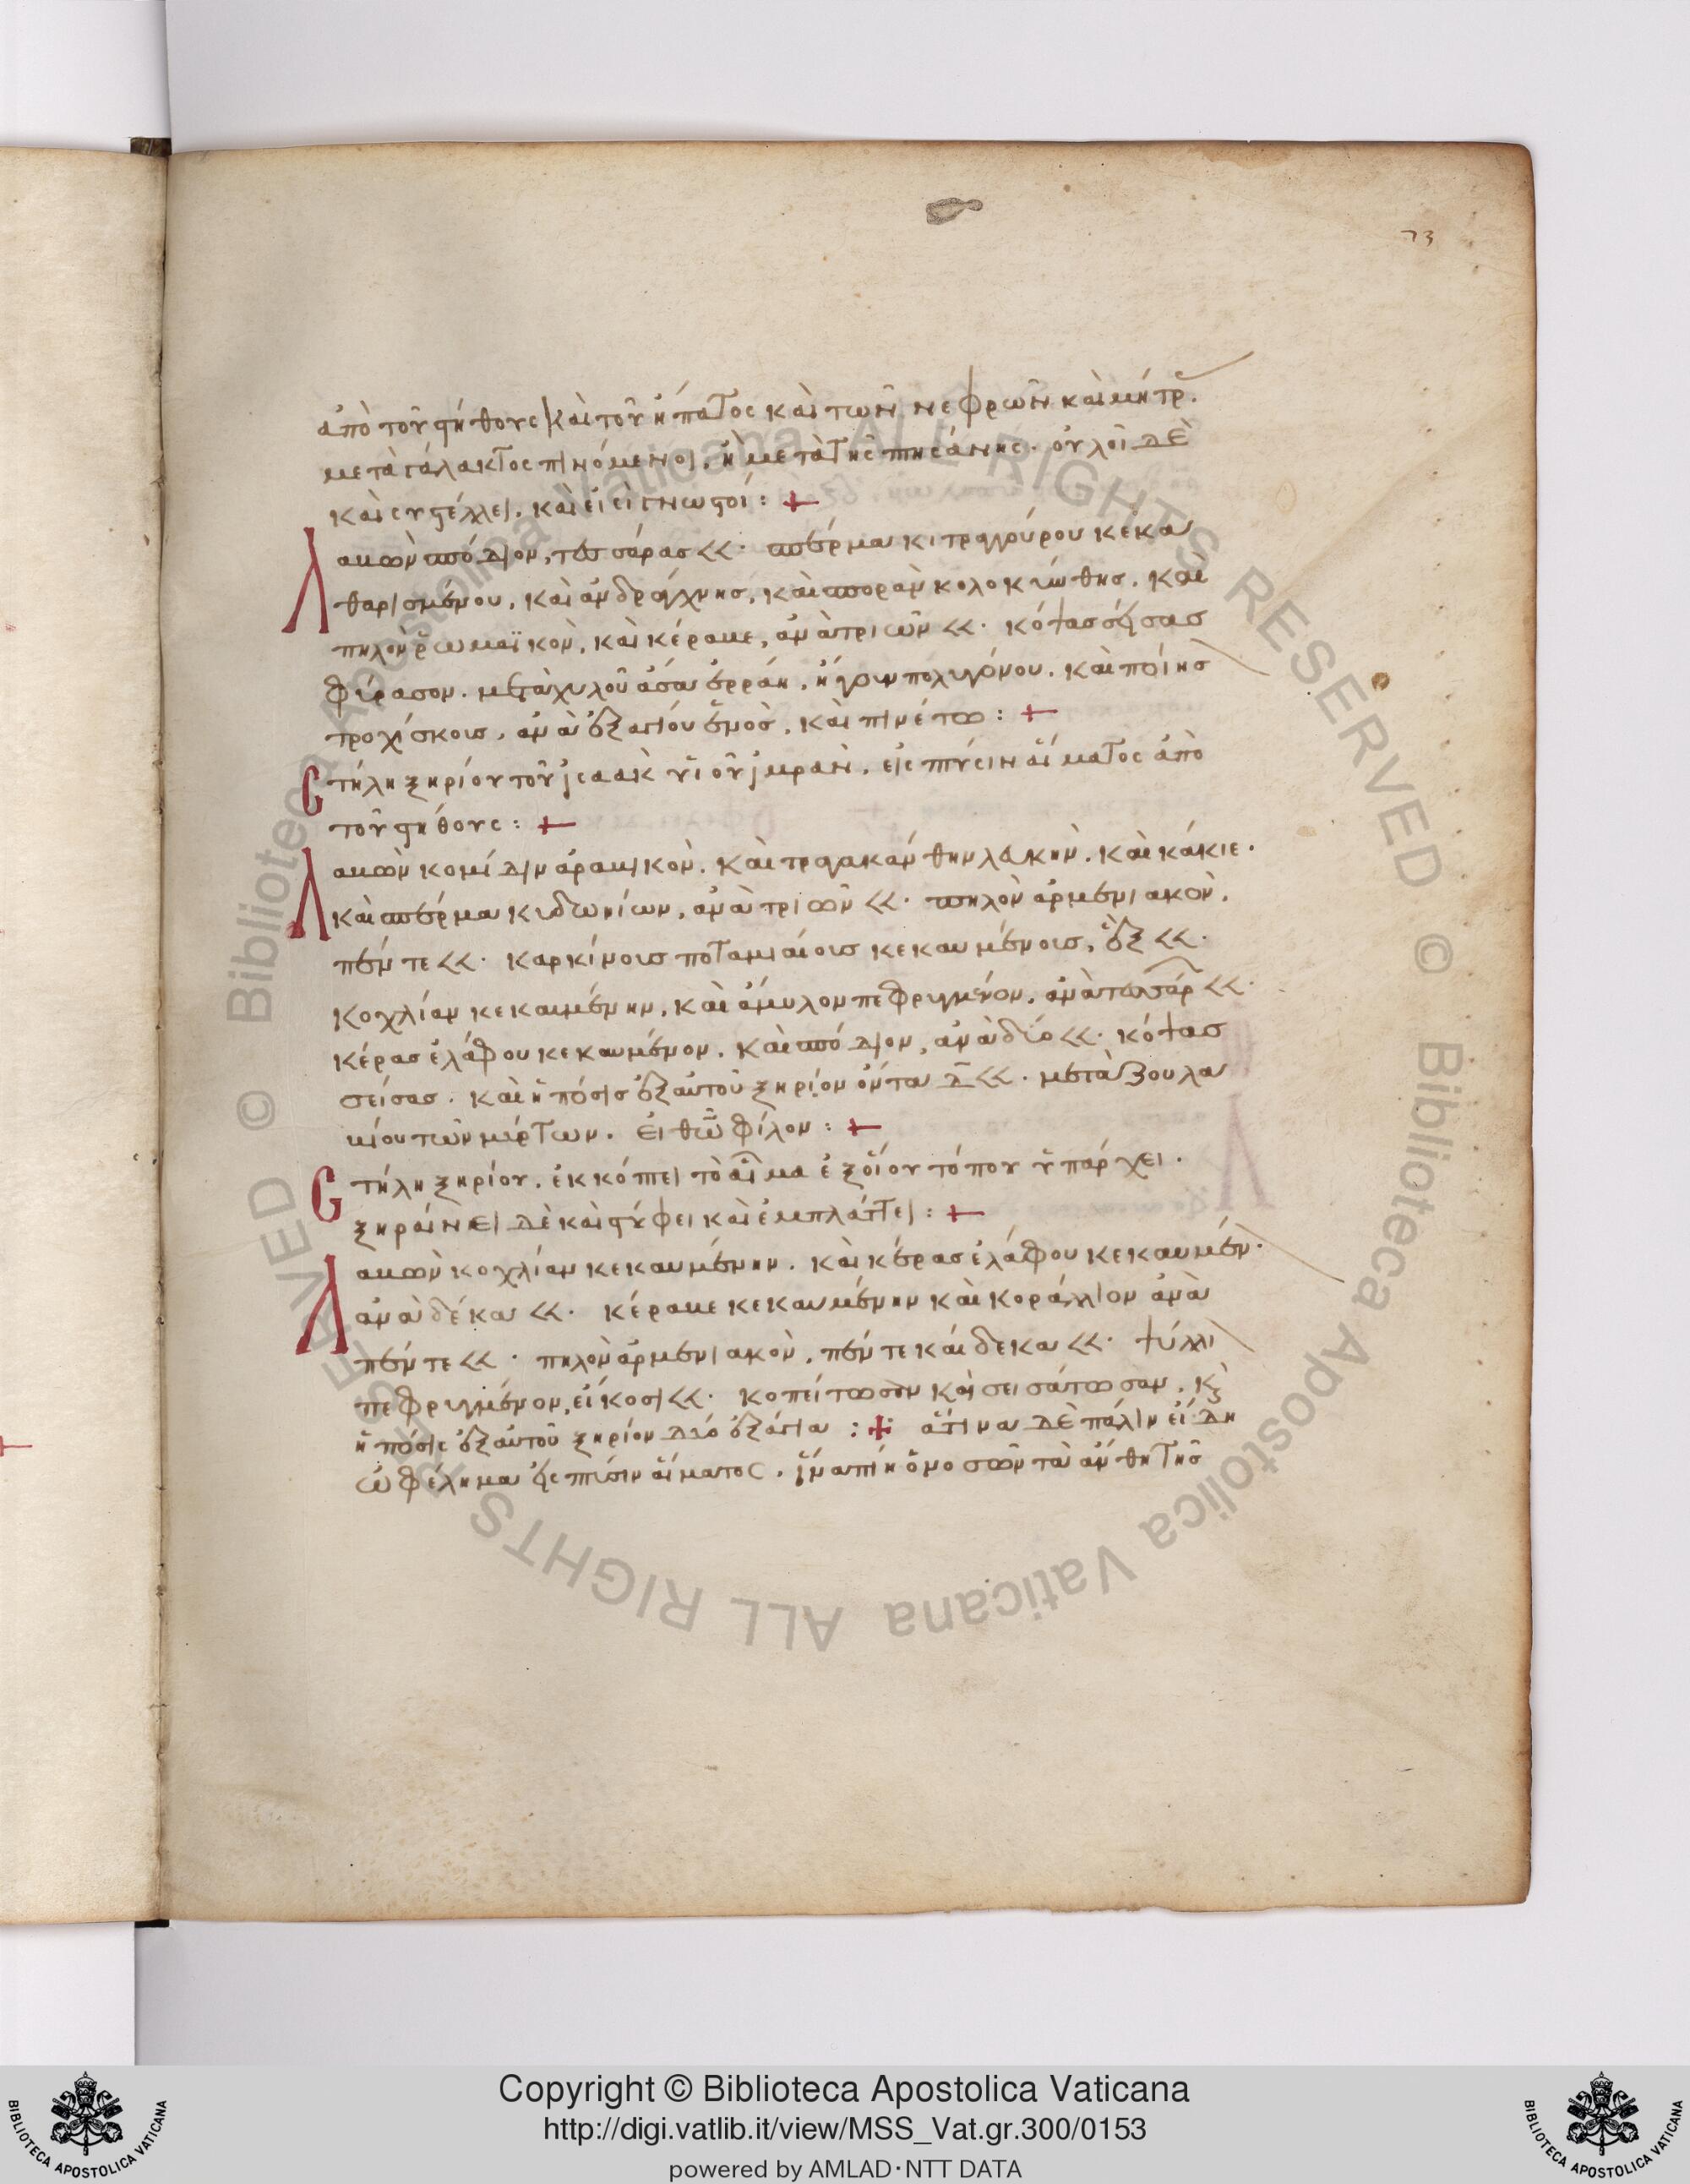 73
ἀπὸ τοῦ στήθους καὶ τοῦ ἥπατος καὶ τῶν νεφρῶν καὶ μήτρ
μετὰ γάλακτος πινόμενοι, ἢ μετὰ τῆς πτησάνης. οὐλοῖ δὲ
καὶ συστέλλει. καὶ εἰσὶ γνωστοί: +
Λαβὼν σπόδιον, τέσσαρας <<. σπέρμα κιτραγούρου κεκα
θαρισμένου, καὶ ἀνδράχνης, καὶ σπορὰν κολοκύνθης. καὶ
πηλὸν ῥωμαϊκὸν, καὶ κέραβε, ἀνὰ τριῶν <<. κόψας σήσας
φύρασον. μετὰ χυλοῦ ἄσα ἐρράη, ἤγουν πολυγόνου. καὶ ποίησ
τροχίσκους, ἀνὰ ἑξαγίου ἑνὸς, καὶ πινέτω: +
Στήλη ξηρίου τοῦ ἰσαὰκ υἱοῦ ἰμρὰν. εἰς πτύσιν αἵματος ἀπὸ
τοῦ στήθους: +
Λαβὼν κομίδιν ἀραβικὸν. καὶ τραγακάνθην λευκὴν. καὶ κάκιε.
καὶ σπέρμα κυδωνίων, ἀνὰ τριῶν <<. πηλὸν ἀρμενιακὸν,
πέντε <<. καρκίνους ποταμιαίους κεκαυμένους, ἓξ <<.
κοχλίαν κεκαυμένην, καὶ ἄμυλον πεφρυγμένον, ἀνὰ τεσσάρ <<.
κέρας ἐλάφου κεκαυμένον. καὶ σπόδιον, ἀνὰ δύο <<. κόψας
σείσας. καὶ ἡ πόσις ἐξ αὐτοῦ ξηρίον ὄντα δ <<. μετὰ ζουλα
βίου τῶν μύρτων. φίλον: +
Στήλη ξηρίου. ἐκκόπτει τὸ αἷμα ἐξ οἵου τόπου ὑπάρχει.
ξηραίνει δὲ καὶ στύφει καὶ ἐμπλάττει: +
Λαβὼν κοχλίαν κεκαυμένην. καὶ κέρας ἐλάφου κεκαυμέν.
ἀνὰ δέκα <<. κέραβε κεκαυμένην καὶ κοράλλιον ἀνὰ
πέντε <<. πηλὸν ἀρμενιακὸν, πέντε καὶ δεκα <<. ψύλλι
πεφρυγμένον, εἴκοσι <<. κοπείτωσαν καὶ σεισάτωσαν. κ
ἡ πόσις ἐξ αὐτοῦ ξηρίον δύο ἑξάγια : + ἅτινα δὲ πάλιν εἴδη
ὠφέλημα εἰς πτύσιν αἵματος. ἵνα πίνομο σῶν τὰ ἄνθη τῆς
Copyright © Biblioteca Apostolica Vaticana
http://digi.vatlib.it/view/MSS_Vat.gr.300/0153
powered by AMLAD·NTT DATA
BIBLIOTECA APOSTOLICA VATICANA
BIBLIOTECA APOSTOLICA VATICANA
© Biblioteca Apostolica Vaticana ALL RIGHTS RESERVED © Biblioteca Apostolica Vaticana ALL RIGHTS RESERVED